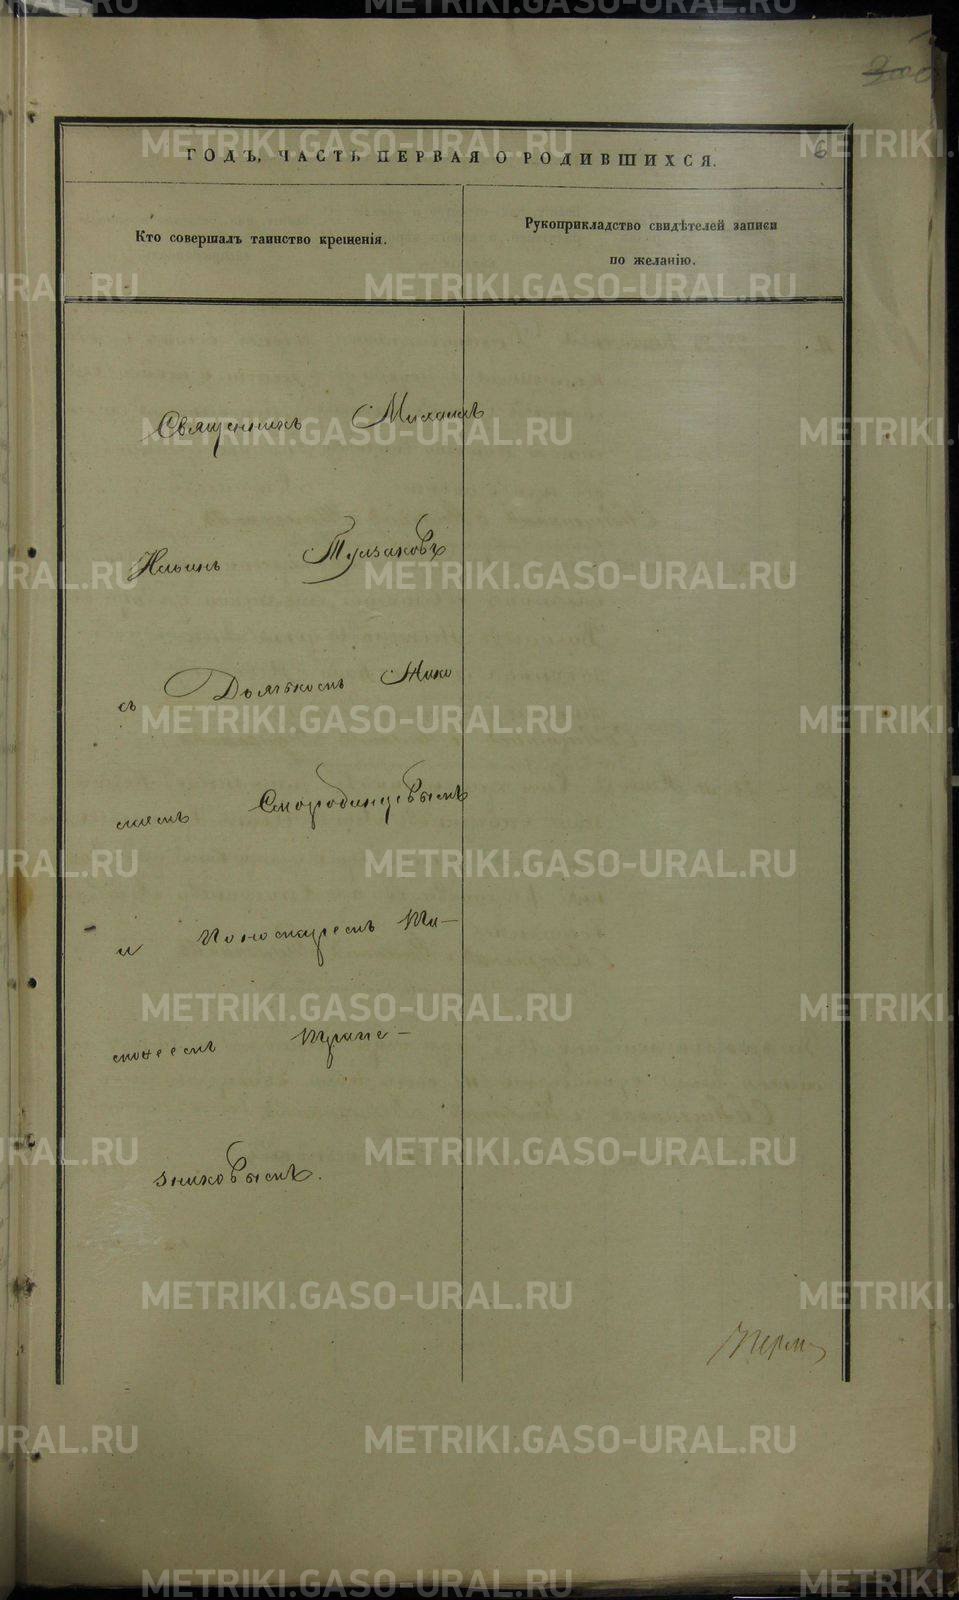 6
ГОДЪ, ЧАСТЬ ПЕРВАЯ О РОДИВШИХСЯ.
Кто совершалъ таинство крещенія.
Рукоприкладство свидѣтелей записи
по желанію.
Священникъ Михаилъ
Ильинъ Тулзаковъ
съ Дьячкомъ Яко
емъ Смородинцевымъ
и Пономаремъ Ти-
моѳеемъ Трапе-
зниковымъ.
METRIKI.GASO-URAL.RU